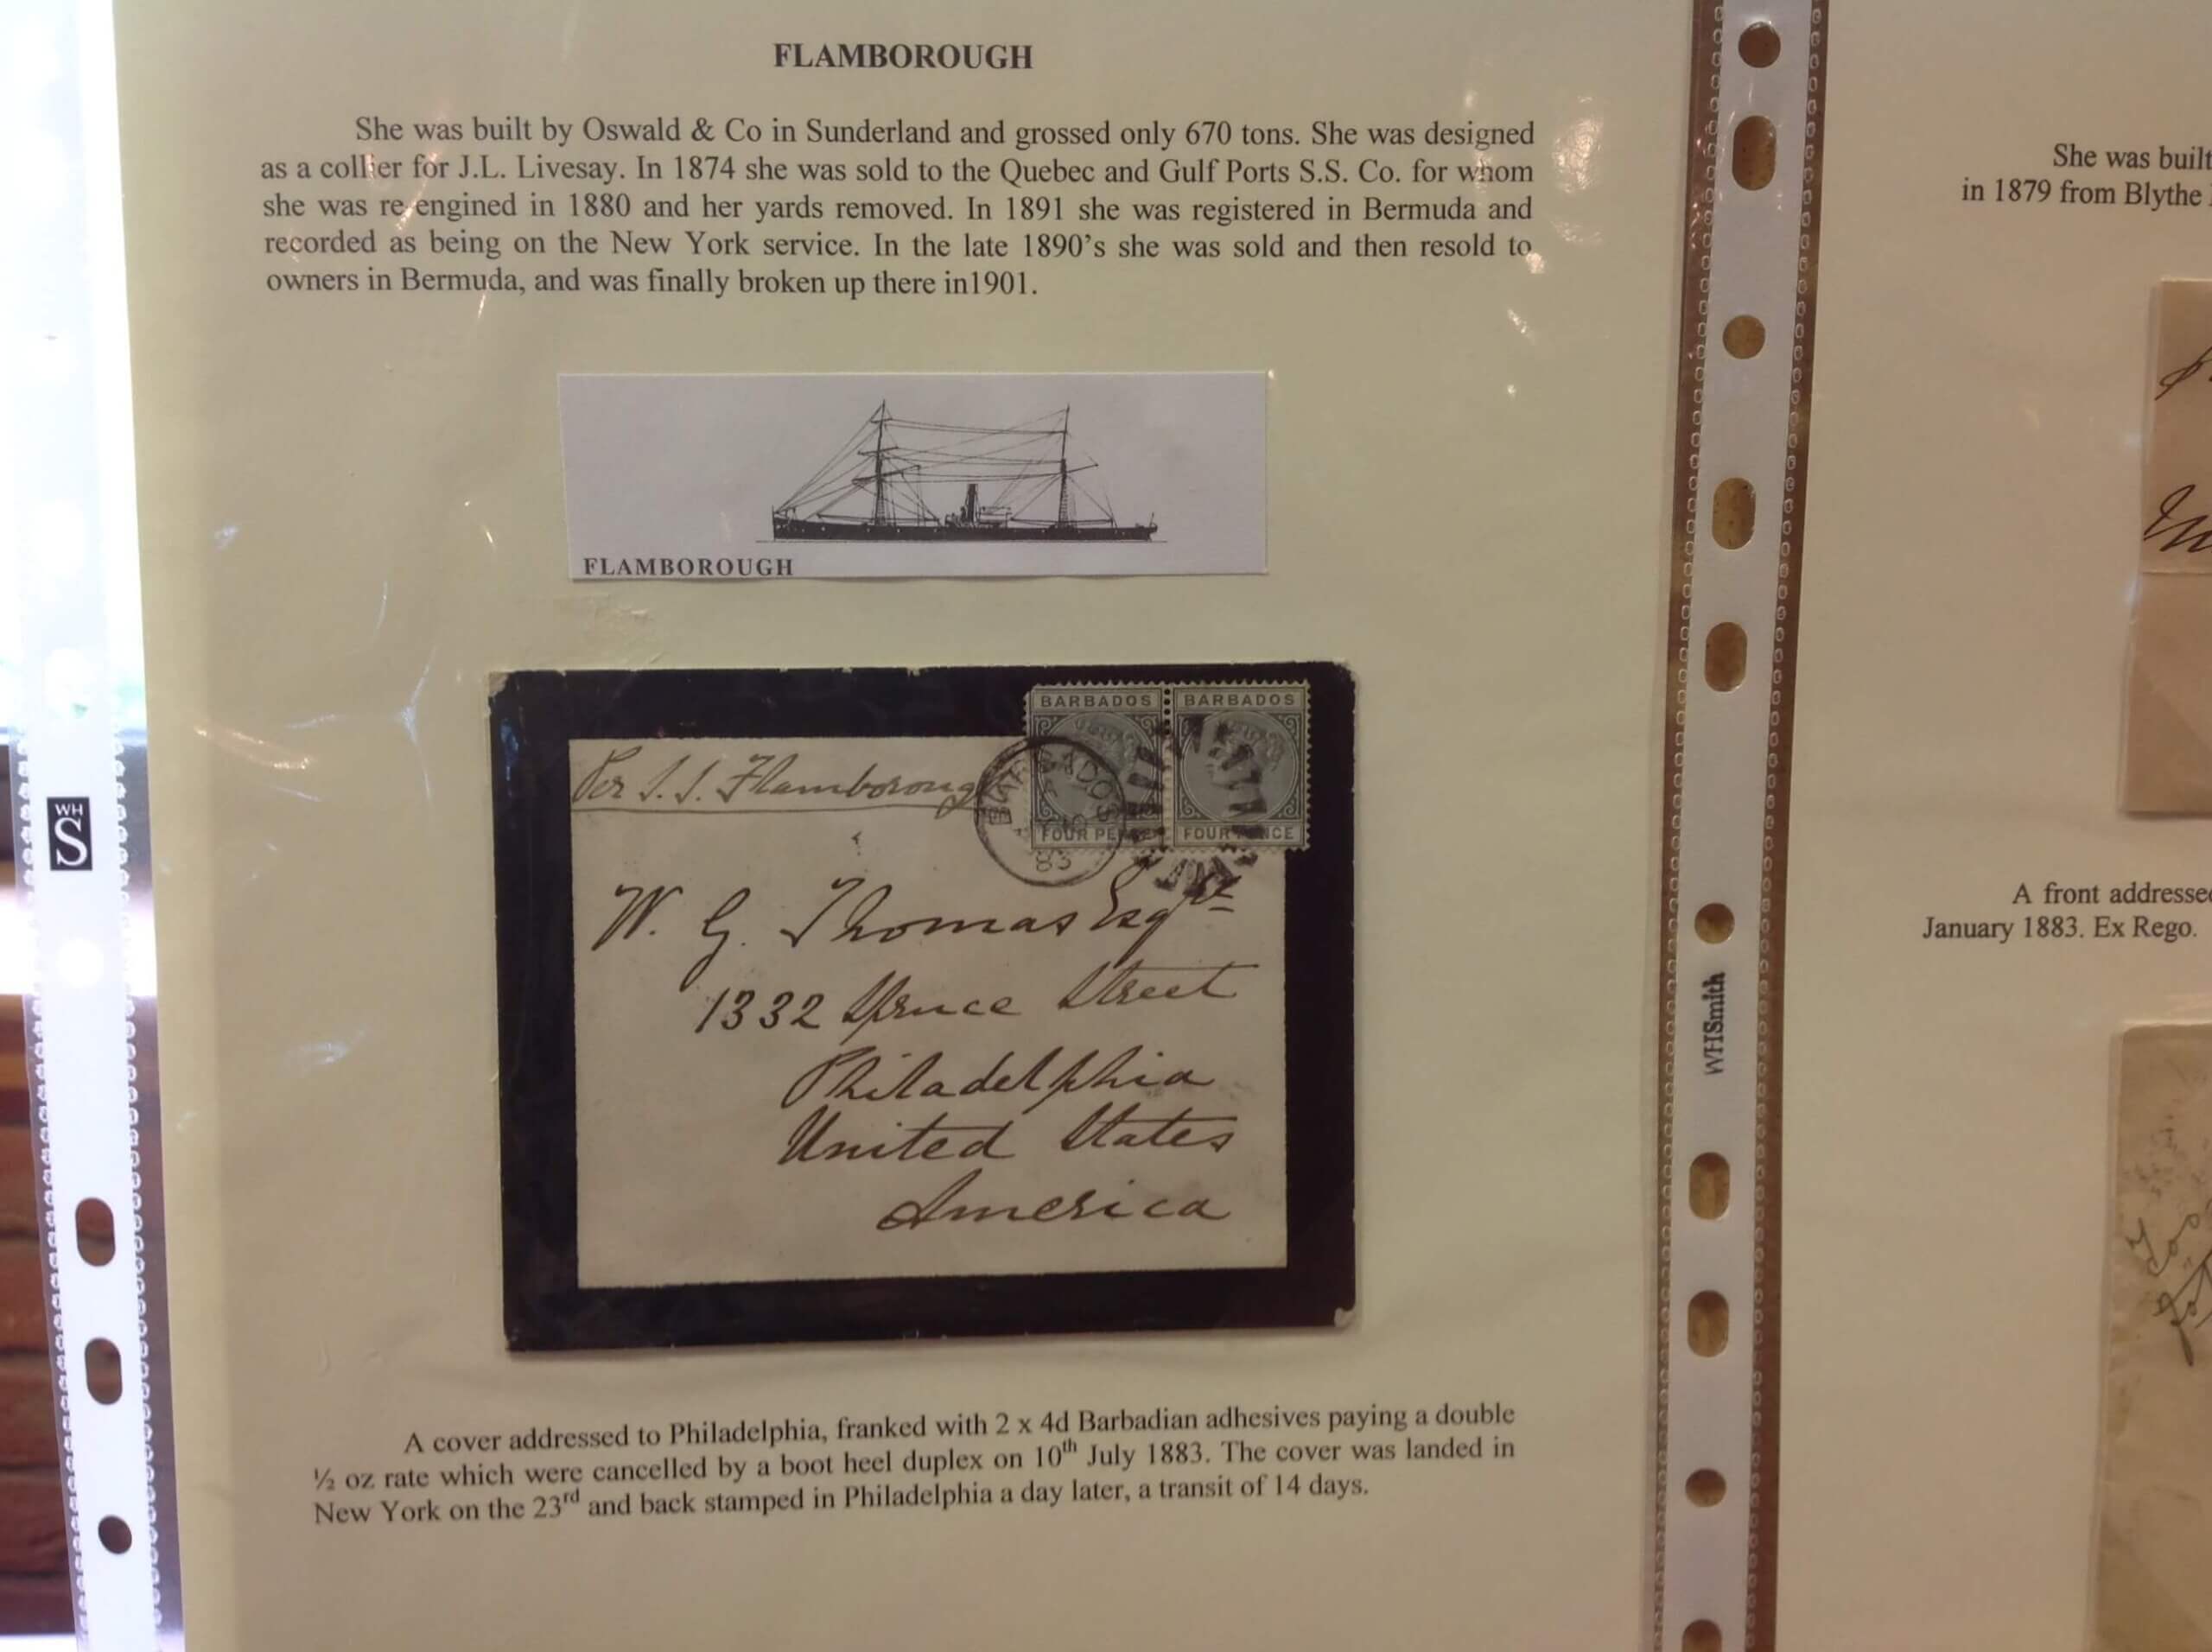 FLAMBOROUGH
She was built by Oswald & Co in Sunderland and grossed only 670 tons. She was designed
as a collier for J.L. Livesay. In 1874 she was sold to the Quebec and Gulf Ports S.S. Co. for whom
she was re-engined in 1880 and her yards removed. In 1891 she was registered in Bermuda and
recorded as being on the New York service. In the late 1890's she was sold and then resold to
owners in Bermuda, and was finally broken up there in1901.
FLAMBOROUGH
BARBADOS BARBADOS
FOUR PENCE FOUR PENCE
BARBADOS
A
83
Per S.S. Flamboroug
W. G. Thomas Esqre
1332 Spruce Street
Philadelphia
United States
America
A cover addressed to Philadelphia, franked with 2 x 4d Barbadian adhesives paying a double
½ oz rate which were cancelled by a boot heel duplex on 10th July 1883. The cover was landed in
New York on the 23rd and back stamped in Philadelphia a day later, a transit of 14 days.
WH
S
WHSmith
She was built
in 1879 from Blythe
A front addressed
January 1883. Ex Rego.